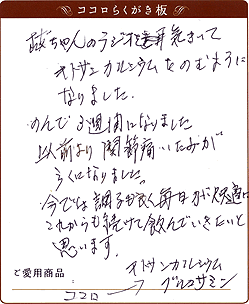 ココロらくがき板
ちゃんのラジオを
オトサンカルシウムをのむように
なりました。
のんで3週間になりました
以前より関節痛いたみが
なくなりました。
今では調子も良く毎日が快適に
これからも続けて飲んでいきたいと
思います。
オトサンカルシウム
ご愛用商品
ココロ → グルコサミン